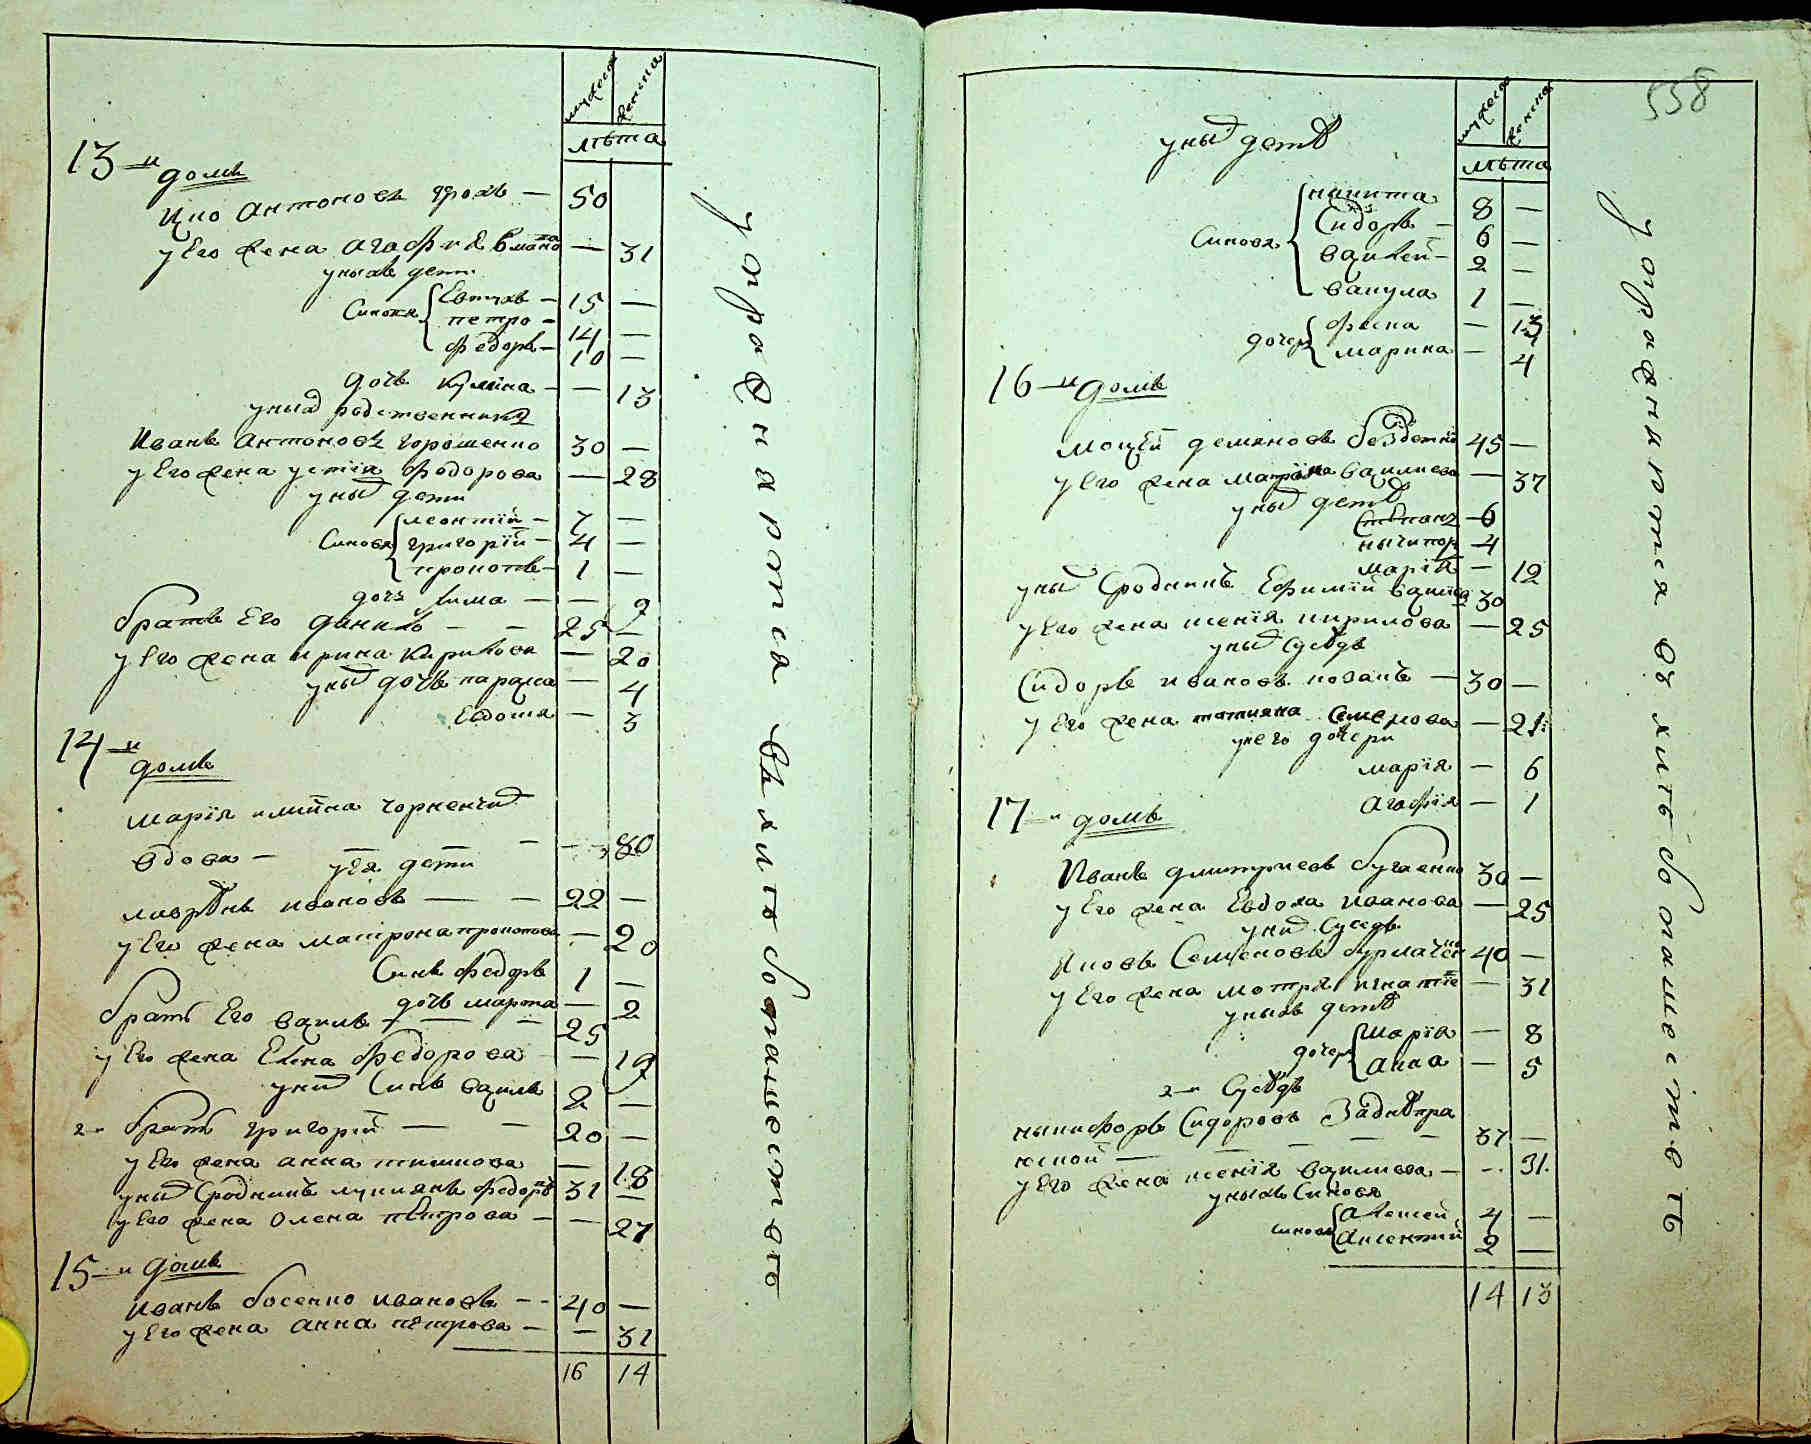 мужеска женска
лѣта
13-й домъ
Яко Антоновъ грохъ — 50
у Его жена Агафия — 31
унихъ дети
Синовя Евтухъ — 15 —
петро — 14 —
федоръ — 10 —
дочь кулина — — 13
униҳ родственники
Иванъ Антоновъ горошенко 30 —
у Его жена устїя федорова — 28
уних дети
Синовя леонтїй — 7 —
григорїй — 4 —
прокопъ — 1 —
дочь Хима — — 9
братъ Его данило — — 25 —
у Его жена ирина Кирилова — 20
уних дочь параска — 4
Евдокия — 3
14-й
домъ
Марїя чорненчиха
вдова — — — — 80
уея дети
лаврѣнъ ивановъ — — 22 —
у Его жена матрона прокопова — 20
Синъ федоръ 1 —
дочь марта — 2
братъ Его василь — — 25
у Его жена Елена федорова — 19
уних Синъ василь 2 —
2-й братъ григорїй — — 20 —
у Его жена анна — 18
уних Сродникъ лукиянъ федоровъ 31 —
у Его жена Олена пѣтрова — — 27
15-й домъ
иванъ босенко ивановъ — — 40 —
у Его жена анна пѣтрова — — 31
16 14
упражняются въ хлѣбопашествѣ
558
мужеска женска
лѣта
уних детей
Синовя никита 8 —
Сидоръ — 6 —
василей — 2 —
вакула 1 —
дочери феска — 13
марина — 4
16-й домъ
демяновъ бездетко 45 —
у Его жена василиева — 37
уних детей
Стѣпанъ — 6
ничипор — 4
марїя — 12
уних Сродникъ Ефимїй василев 30
у Его жена ксенїя кирилова — 25
уних Сусѣдъ
Сидоръ ивановъ козакъ — 30 —
у Его жена татияна Семенова — 21
унего дочери
марїя — 6
агафїя — 1
17-й домъ
Иванъ дмитриевъ бугаенко 30 —
у Его жена Евдоха Иванова — 25
уних Сусѣдъ
Яковъ Семеновъ бурлаченко 40 —
у Его жена мотря — 31
унихъ детей
дочери марїя — 8
анна — 5
2-й Сусѣдъ
никифоръ Сидоровъ Заднѣпра
нской — — — — 37 —
у Его жена ксенїя василиева — — 31
унихъ Синовя
Синовя алексей 4 —
аксентий 2 —
14 13
упражняются въ хлѣбопашествѣ